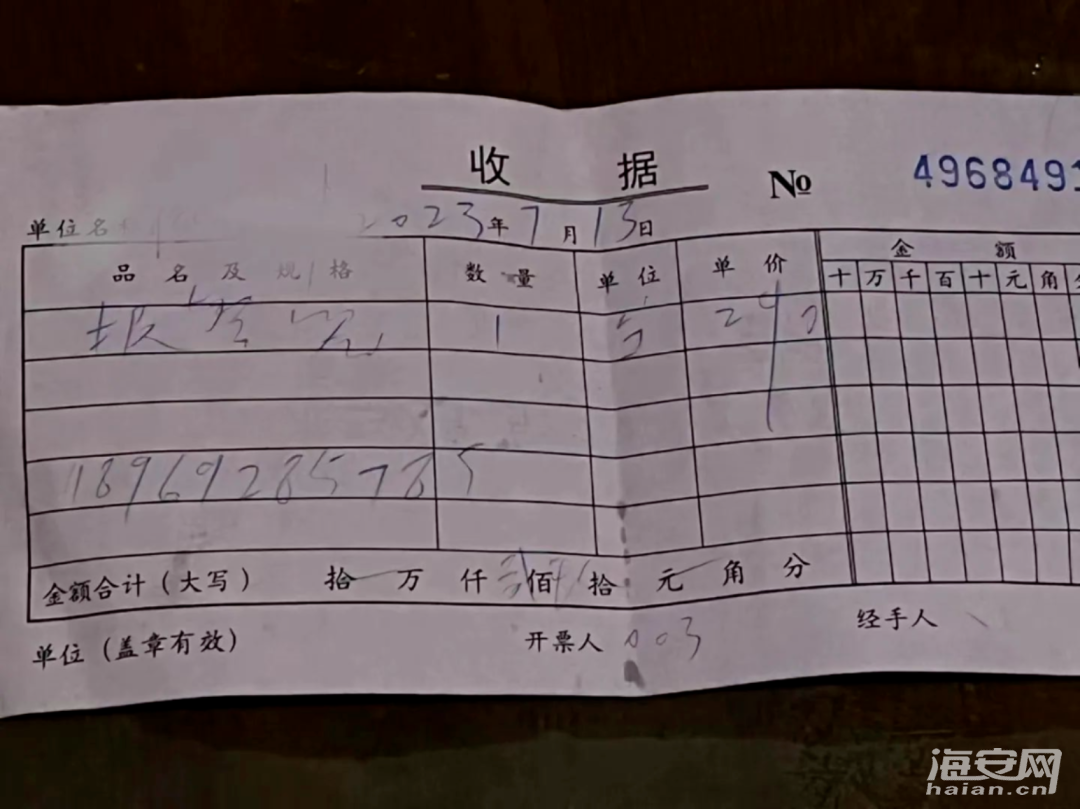 收 据 № 4968491
单位名 2023年7月13日
品名及规格 数量 单位 单价 金额
十万千百十元角分
报警器 1 台 290
18969285785
金额合计（大写） 拾 万 仟 贰佰 拾 元 角 分
单位（盖章有效） 开票人 003 经手人
海安网
haian.cn